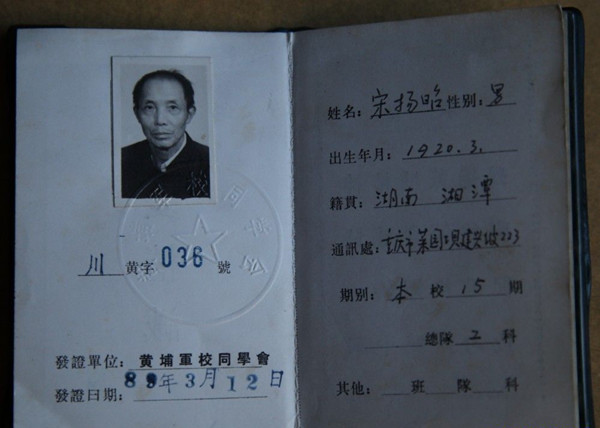 川 黄字 036 號
發證單位: 黄埔軍校同學會
發證日期: 89年3月12日
姓名: 宋扬昭 性别: 男
出生年月: 1920.3.
籍貫: 湖南 湘潭
通訊處: 重庆市菜园坝建兴坡223
期别: 本校 15 期
總隊 2 科
其他: 班 隊 科